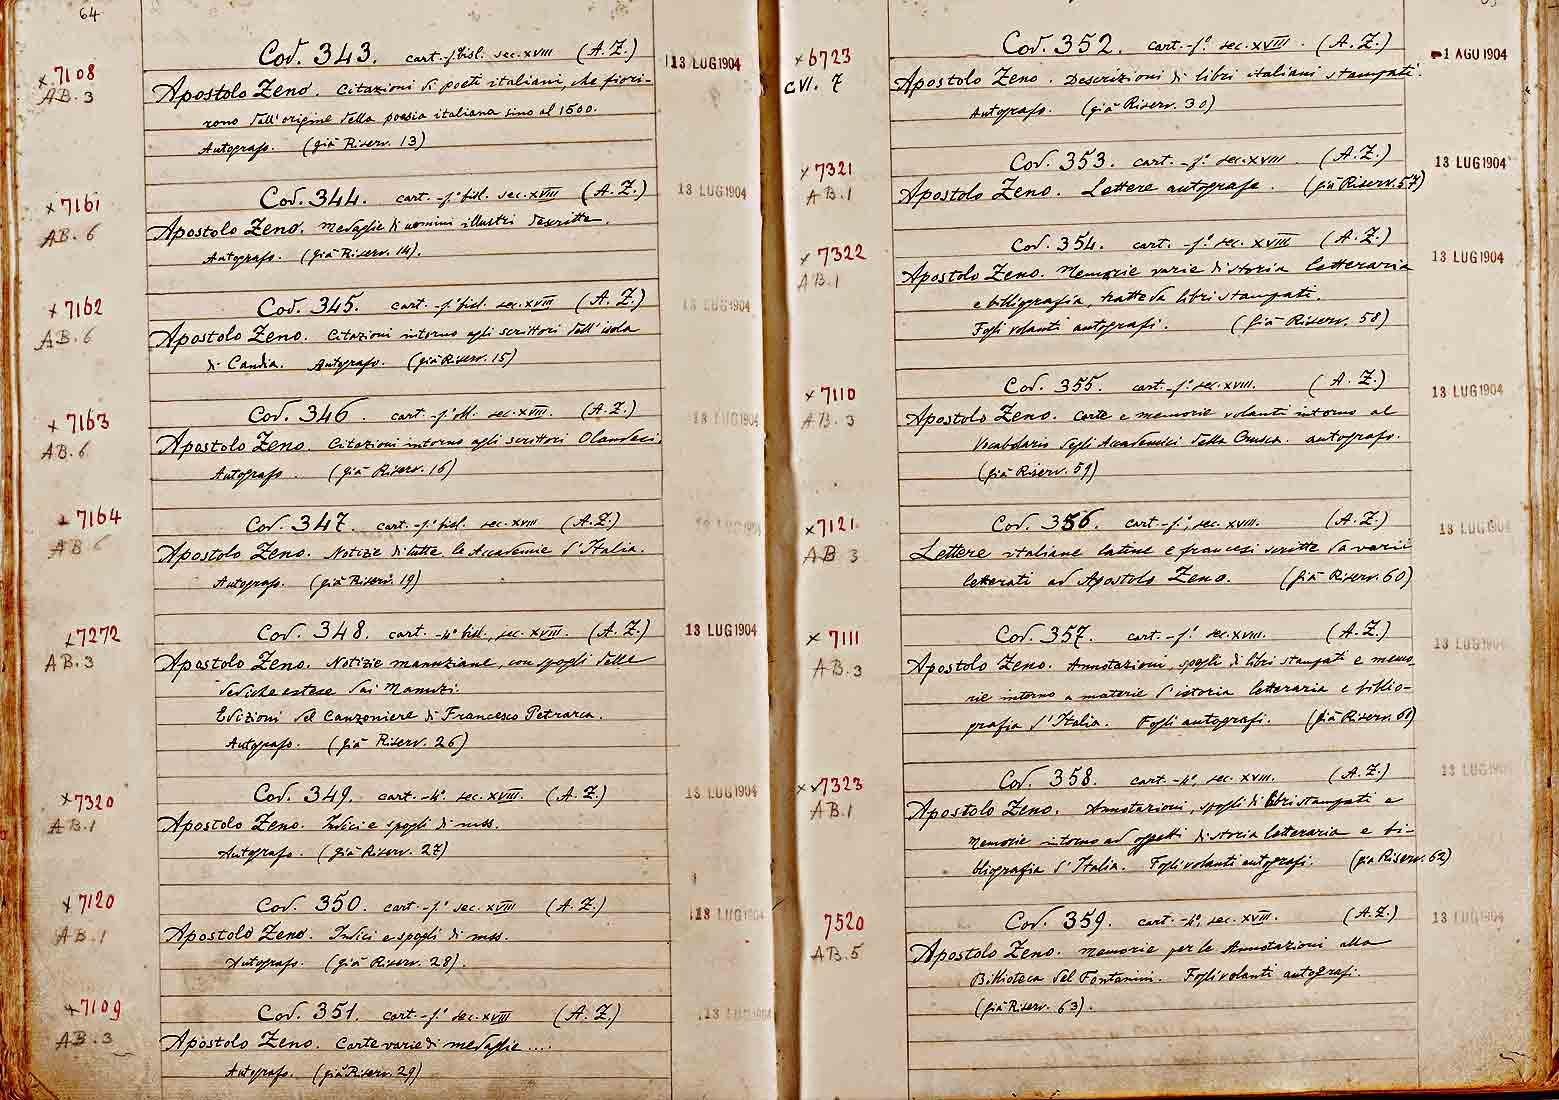 64
Cod. 343. cart. - f.° bisl. sec. XVIII (A. Z.)
13 LUG 1904
x 7108
AB. 3
Apostolo Zeno. Citazioni di poeti italiani, che fiori-
rono dall'origine della poesia italiana sino al 1500.
Autografo. (già Riserv. 13)
Cod. 344. cart. - f.° bisl. sec. XVIII (A. Z.)
13 LUG 1904
x 7161
AB. 6
Apostolo Zeno. Medaglie di uomini illustri descritte.
Autografo. (già Riserv. 14).
Cod. 345. cart. - f.° bisl. sec. XVIII (A. Z.)
13 LUG 1904
x 7162
AB. 6
Apostolo Zeno. Citazioni intorno agli scrittori dell'isola
di Candia. Autografo. (già Riserv. 15)
Cod. 346 cart. - f.° sec. XVIII. (A. Z.)
13 LUG 1904
x 7163
AB. 6
Apostolo Zeno. Citazioni intorno agli scrittori Olandesi.
Autografo. (già Riserv. 16)
Cod. 347. cart. - f.° bisl. sec. XVIII (A. Z.)
13 LUG 1904
x 7164
AB 6
Apostolo Zeno. Notizie di tutte le Accademie d'Italia.
Autografo. (già Riserv. 19)
Cod. 348. cart. - 4° bisl., sec. XVIII. (A. Z.)
13 LUG 1904
x 7272
AB. 3
Apostolo Zeno. Notizie manuziane, con spogli delle
dediche estese dai Manuzi.
Edizioni del Canzoniere di Francesco Petrarca.
Autografo. (già Riserv. 26)
Cod. 349. cart. - 4°. sec. XVIII. (A. Z.)
13 LUG 1904
x 7320
AB. 1
Apostolo Zeno. Indici e spogli di mss.
Autografo. (già Riserv. 27)
Cod. 350. cart. - f.° sec. XVIII (A. Z.)
13 LUG 1904
x 7120
AB. 1
Apostolo Zeno. Indici e spogli di mss.
Autografo. (già Riserv. 28).
Cod. 351. cart. - f.° sec. XVIII (A. Z.)
13 LUG 1904
x 7109
AB. 3
Apostolo Zeno. Carte varie di medaglie ....
Autografo. (già Riserv. 29)
Cod. 352. cart. - f.° sec. XVIII. (A. Z.)
-1 AGO 1904
x 6723
CVI. 7
Apostolo Zeno. Descrizioni di libri italiani stampati.
Autografo. (già Riserv. 30)
Cod. 353. cart. - f.° sec. XVIII. (A. Z.)
13 LUG 1904
x 7321
AB. 1
Apostolo Zeno. Lettere autografe. (già Riserv. 57)
Cod. 354. cart. - f.° sec. XVIII (A. Z.)
13 LUG 1904
x 7322
AB. 1
Apostolo Zeno. Memorie varie di storia letteraria
e bibligrafia, tratte da libri stampati.
Fogli volanti autografi. (già Riserv. 58)
Cod. 355. cart. - f.° sec. XVIII. (A. Z.)
13 LUG 1904
x 7110
AB. 3
Apostolo Zeno. Carte e memorie volanti intorno al
Vocabolario degli Accademici della Crusca. autografo.
(già Riserv. 59)
Cod. 356. cart. - f.°, sec. XVIII. (A. Z.)
13 LUG 1904
x 7121
AB 3
Lettere italiane latine e francesi scritte da varii
letterati ad Apostolo Zeno. (già Riserv. 60)
Cod. 357. cart. - f.° sec. XVIII. (A. Z.)
13 LUG 1904
x 7111
AB. 3
Apostolo Zeno. Annotazioni, spogli di libri stampati e memo-
rie intorno a materie d'istoria letteraria e biblio-
grafia d'Italia. Fogli autografi. (già Riserv. 61)
Cod. 358. cart. - 4°, sec. XVIII. (A. Z.)
13 LUG 1904
x 7323
AB. 1
Apostolo Zeno. Annotazioni, spogli di libri stampati e
Memorie intorno ad oggetti di storia letteraria e bi-
bliografia d'Italia. Fogli volanti autografi. (già Riserv. 62)
Cod. 359. cart. - 4°, sec. XVIII. (A. Z.)
13 LUG 1904
7520
AB. 5
Apostolo Zeno. Memorie per le Annotazioni alla
Biblioteca del Fontanini. Fogli volanti autografi.
(già Riserv. 63).